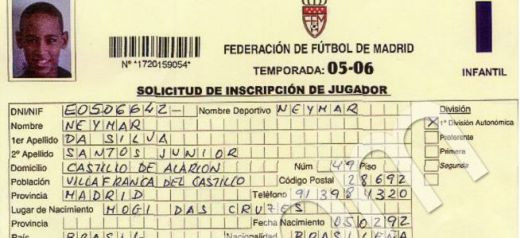 Nº *1720159054*
FEDERACIÓN DE FÚTBOL DE MADRID
TEMPORADA: 05-06
INFANTIL
SOLICITUD DE INSCRIPCIÓN DE JUGADOR
DNI/NIF E0506642- Nombre Deportivo NEYMAR División
Nombre NEYMAR X 1ª División Autonómica
1er Apellido DA SILVA Preferente
2º Apellido SANTOS JUNIOR Primera
Domicilio CASTILLO DE ALARCON Núm 49 Piso Segunda
Población VILLAFRANCA DEL CASTILLO Código Postal 28692
Provincia MADRID Teléfono 913984320
Lugar de Nacimiento MOGI DAS CRUZES
Provincia Fecha Nacimiento 050292
BRASIL Nacionalidad BRASILEÑA